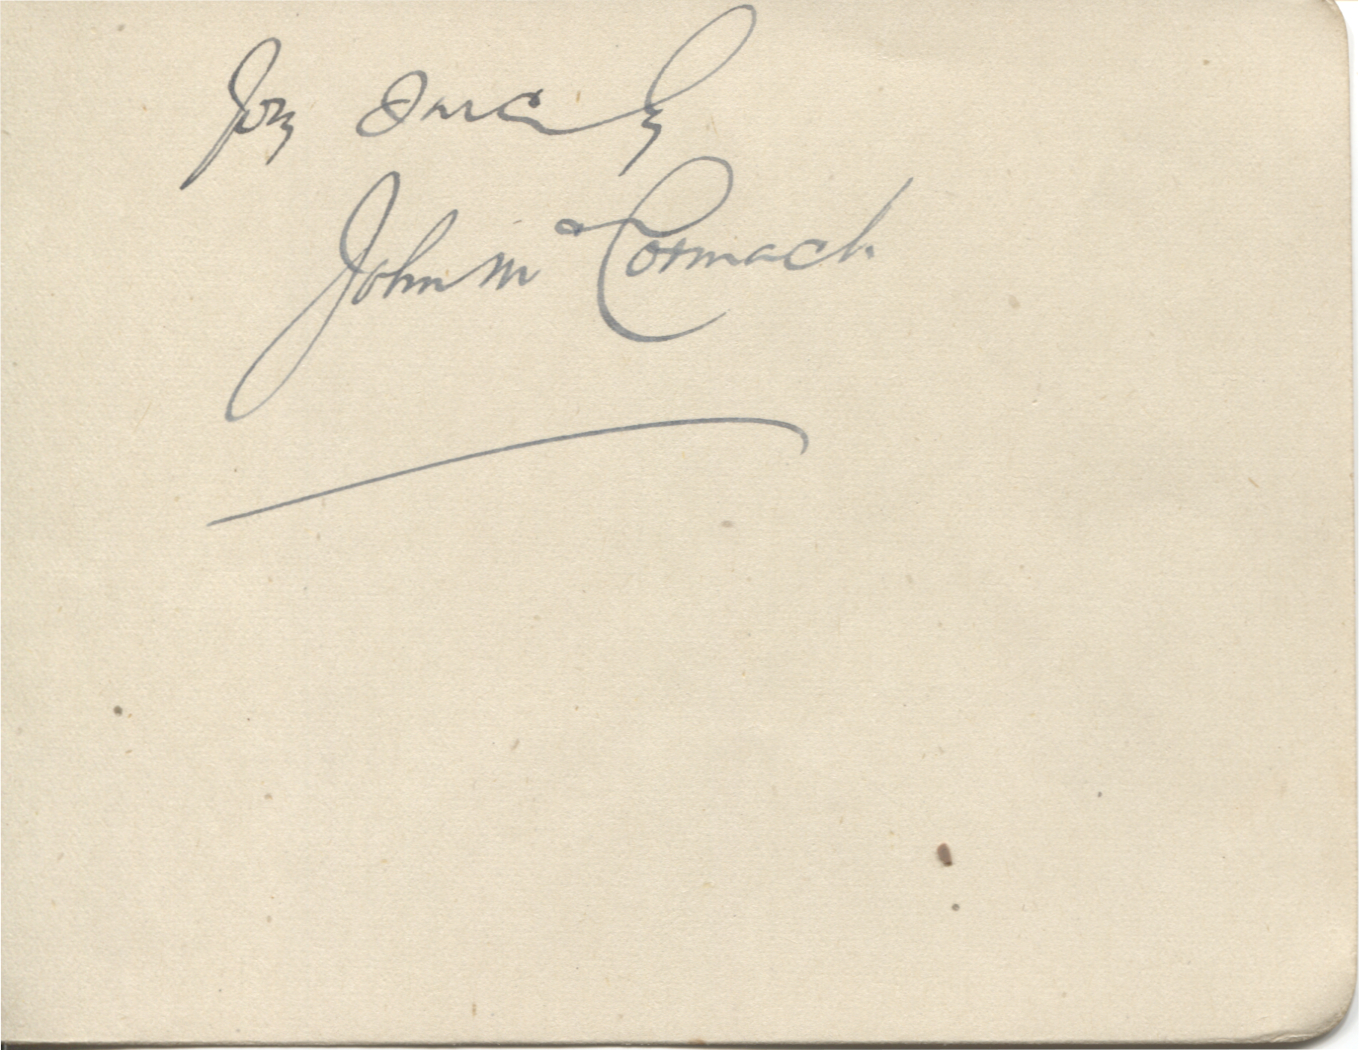 Sincerely
John McCormack